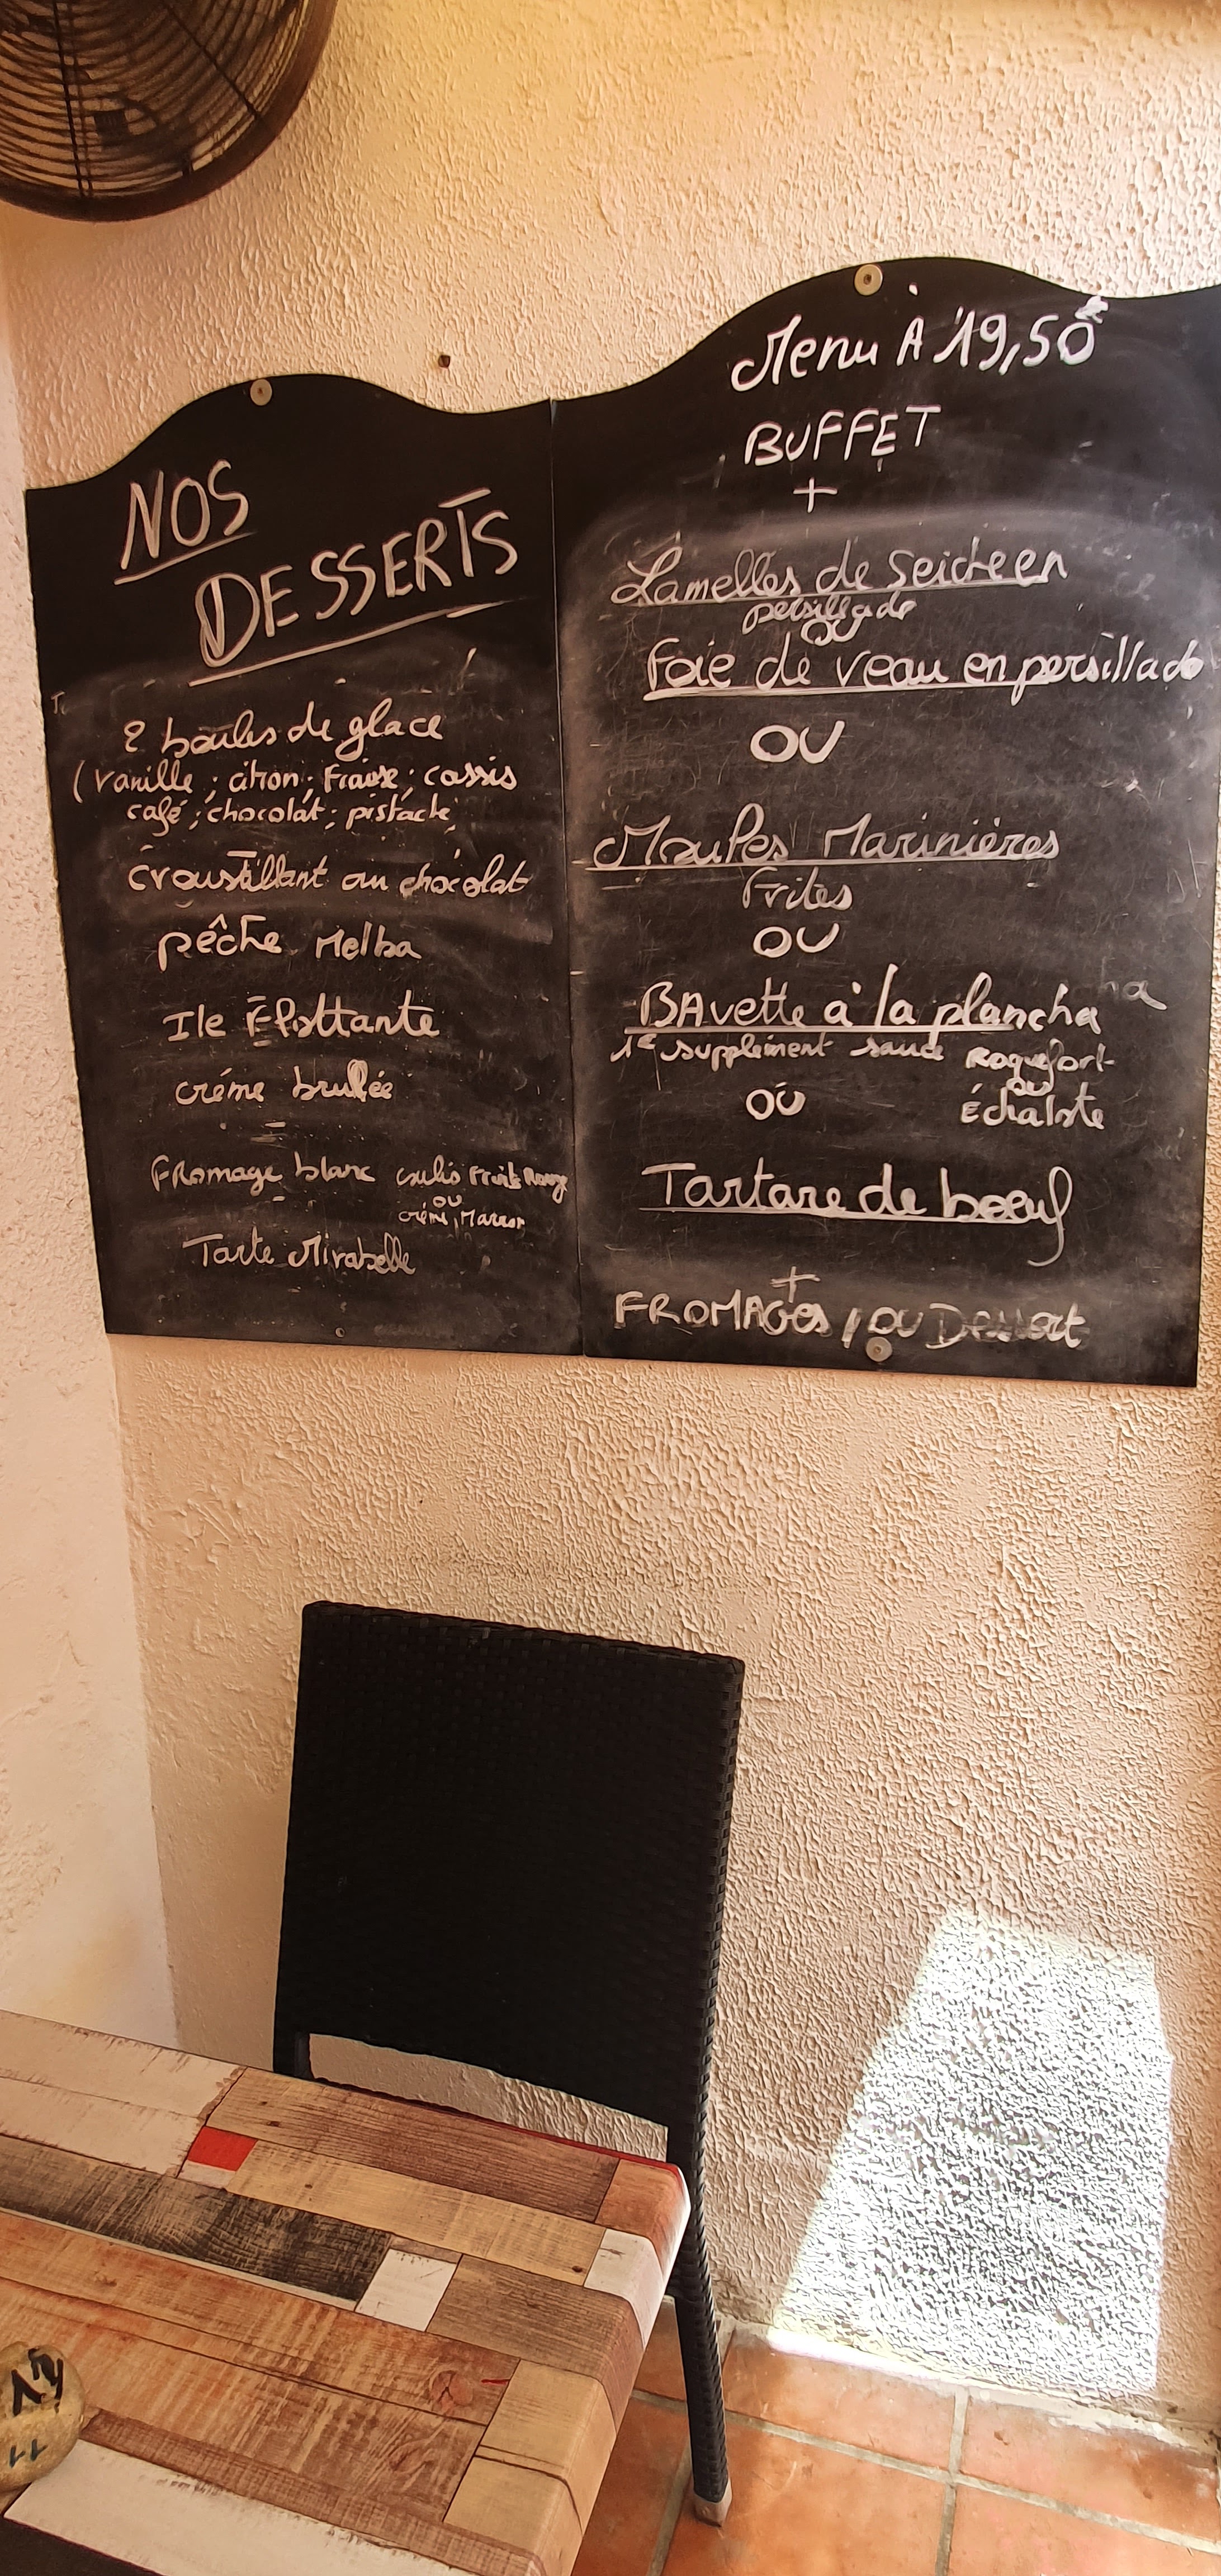 NOS
DESSERTS
2 boules de glace
(vanille ; citron ; Fraise ; cassis
café ; chocolat ; pistache
croustillant au chocolat
pêche Melba
Ile Flottante
créme brulée
Fromage blanc coulis Fruits Rouge
ou
créme Marron
Tarte Mirabelle
Menu À 19,50€
BUFFET
+
Lamelles de seiche en
persillade
OU
Foie de veau en persillade
OU
Moules Marinières
Frites
OU
BAvette à la plancha
1€ supplément sauce Roquefort
ou
OU Échalote
Tartare de boeuf
+
FROMAGES / OU Dessert
11